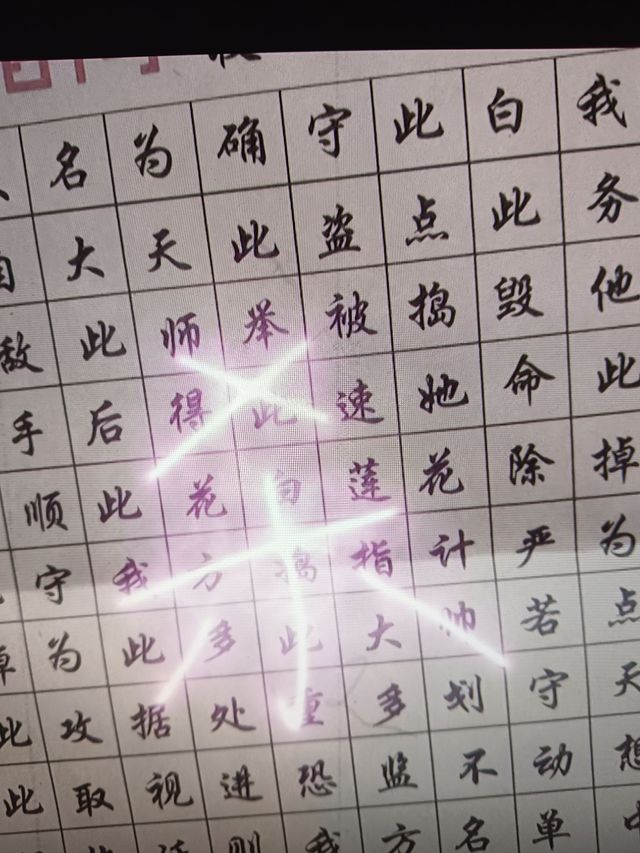 名为确守此白我
大天此盗点此务
敌此师举被捣毁他
手后得此速她命此
顺此花白莲花除掉
守我方捣指计严为
掉为此多此大帅若点
此攻据处重多划守天
此取视进恐监不动想
则我方名单
杀